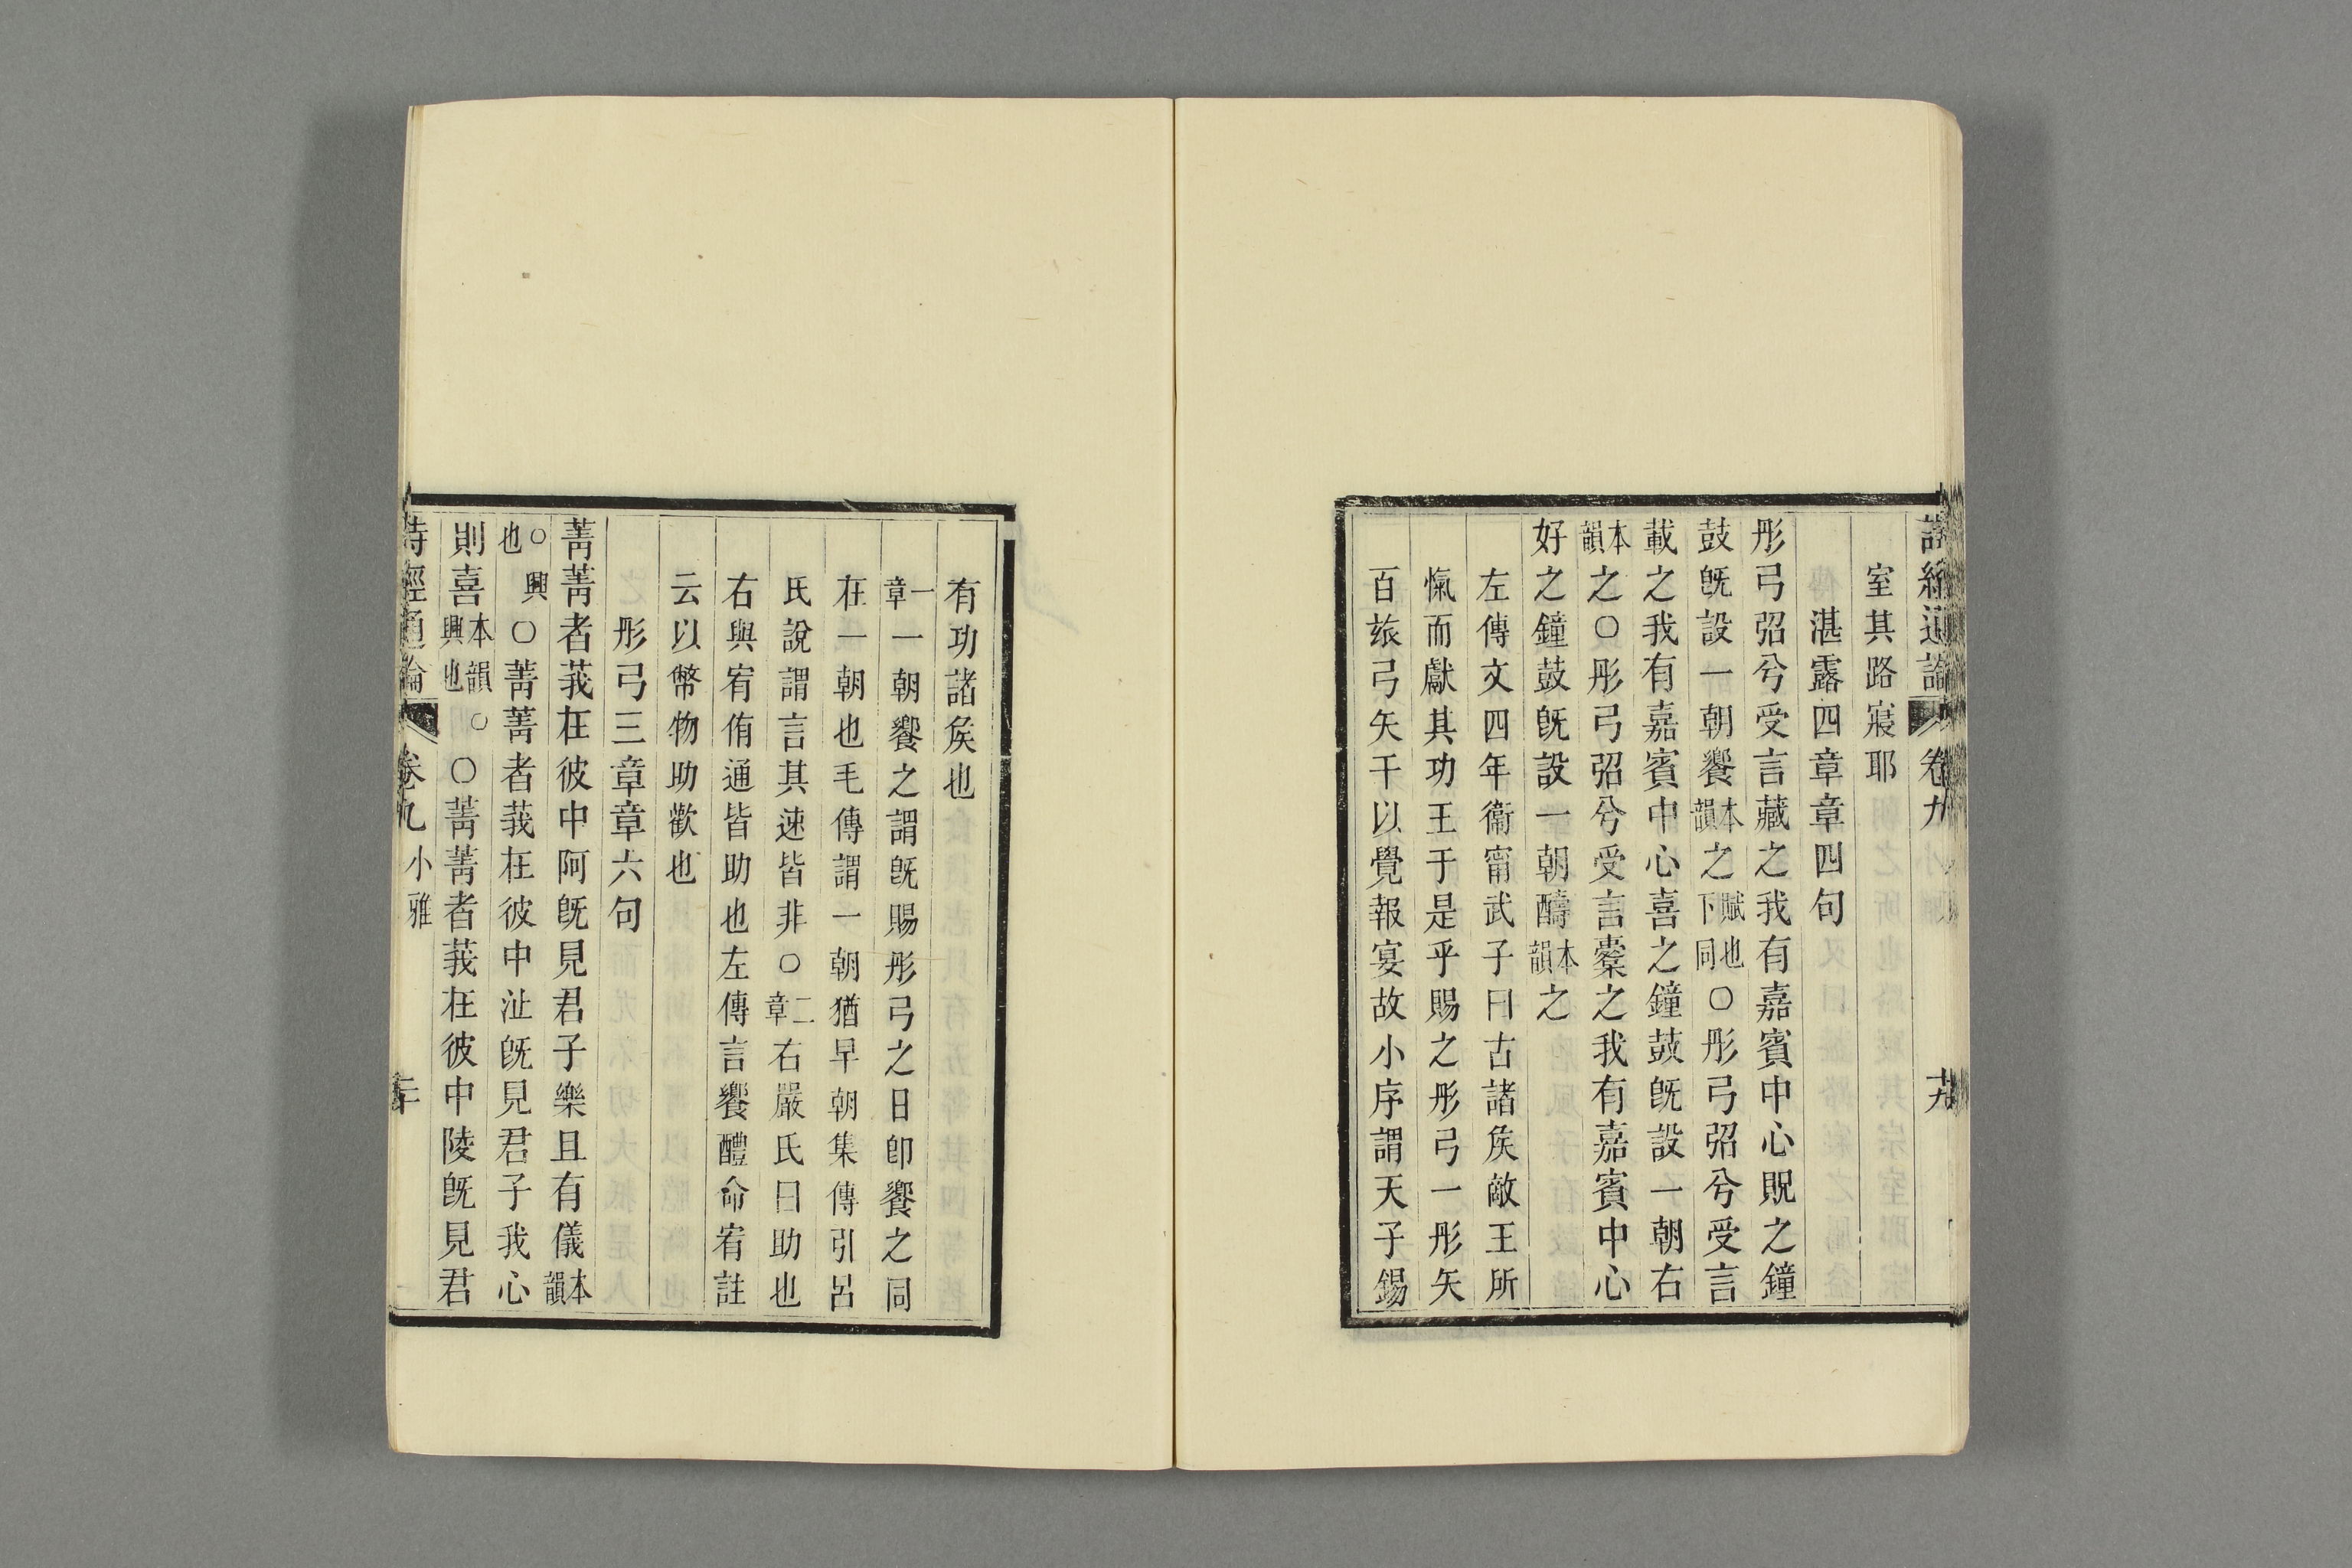 詩經通論 卷九 十九
室其路寢耶
湛露四章章四句
彤弓弨兮受言藏之我有嘉賓中心貺之鐘
鼓旣設一朝饗本韻之賦也下同○彤弓弨兮受言
載之我有嘉賓中心喜之鐘鼓旣設一朝右
本韻之○彤弓弨兮受言櫜之我有嘉賓中心
好之鐘鼓旣設一朝醻本韻之
左傳文四年衞甯武子曰古諸矦敵王所
愾而獻其功王于是乎賜之彤弓一彤矢
百玈弓矢千以覺報宴故小序謂天子錫
有功諸矦也
一章一朝饗之謂旣賜彤弓之日卽饗之同
在一朝也毛傳謂一朝猶早朝集傳引呂
氏說謂言其速皆非○二章右嚴氏曰助也
右與宥侑通皆助也左傳言饗醴命宥註
云以幣物助歡也
彤弓三章章六句
菁菁者莪在彼中阿旣見君子樂且有儀本韻
○興也○菁菁者莪在彼中沚旣見君子我心
則喜本韻○興也○菁菁者莪在彼中陵旣見君
詩經通論 卷九 小雅 二十